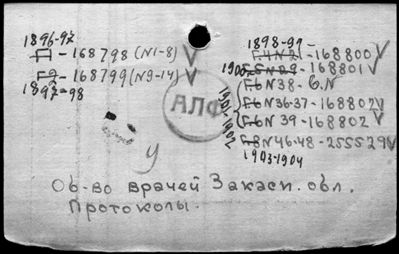 1896-97
Г1 - 168798 (N1-8) V
Г2 - 168799 (N9-14) V
1897-98
1898-99 -
Г4 N21 - 168800 V
1900 Г5 N29 - 168801 V
Г6 N38 - б.N
1901-1902
Г6 N36-37 - 168802 V
Г6 N 39 - 168802 V
Г8 N46-48 - 255529 V
1903-1904
АЛФ
У
Об-во врачей Закасп. обл.
Протоколы.